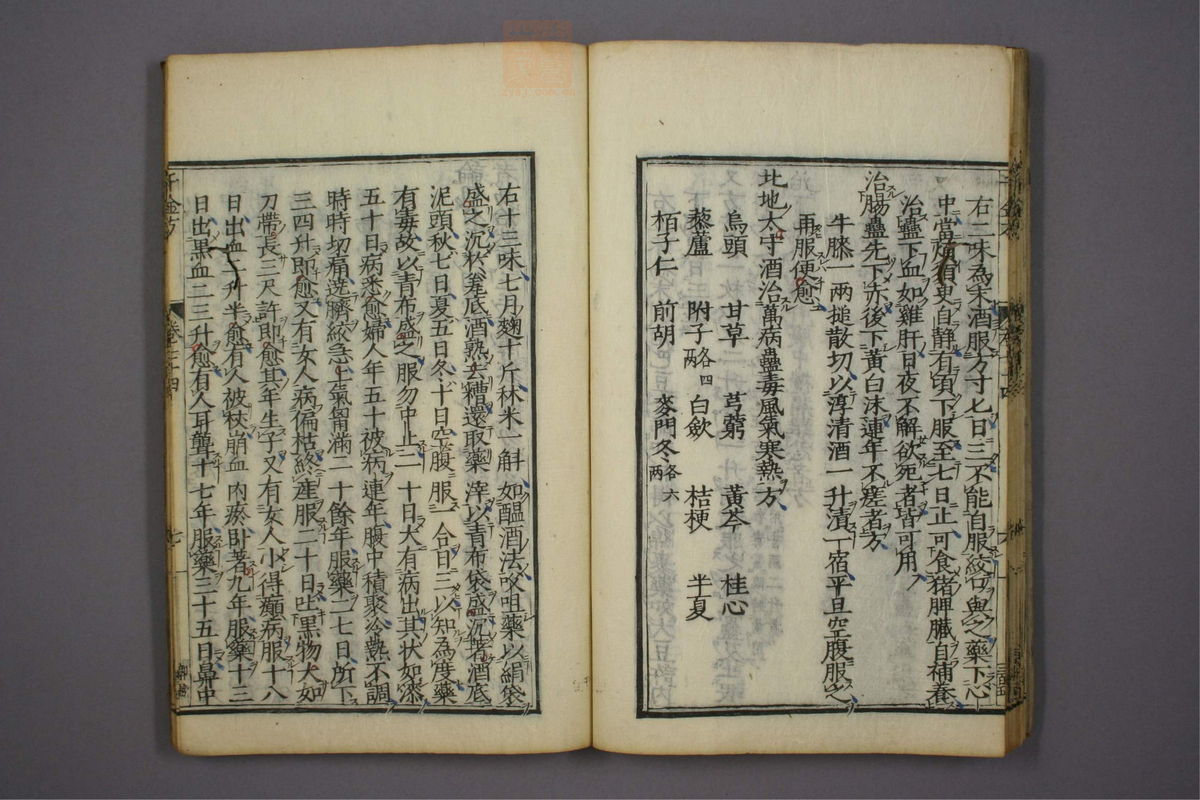 右三味為末酒服方寸匕日三不能自服絞口與之藥下心
中當煩須臾自静有頃下服至七日止可食猪脾臓自補養
治蠱下血如雞肝日夜不解欲死者皆可用
治腸蠱先下赤後下黄白沫連年不瘥者方
牛膝一兩搥散切以淳清酒一升漬一宿平旦空腹服之
再服便愈
北地太守酒治萬病蠱毒風氣寒熱方
烏頭 甘草 芎藭 黃芩 桂心
藜蘆 附子各四兩 白斂 桔梗 半夏
栢子仁 前胡 麥門冬各六兩
右十三味七月麴十斤秫米一斛如醞酒法㕮咀藥以絹袋
盛之沉於瓮底酒熟去糟還取藥滓以青布袋盛沉著酒底
泥頭秋七日夏五日冬十日空腹服一合日三以知為度藥
有毒故以青布盛之服勿中止二十日大有病出其状如漆
五十日病悉愈婦人年五十被病連年腹中積聚冷熱不調
時時切痛遶臍絞急上氣胷滿二十餘年服藥二七日所下
三四升即愈又有女人病偏枯絶産服二十日吐黑物大如
刀帶長三尺許即愈其年生子又有女人小得癲病服十八
日出血二升半愈有人被杖崩血內瘀卧著九年服藥十三
日出黑血二三升愈有人耳聾十七年服藥三十五日鼻中
千金方
卷二十四
七